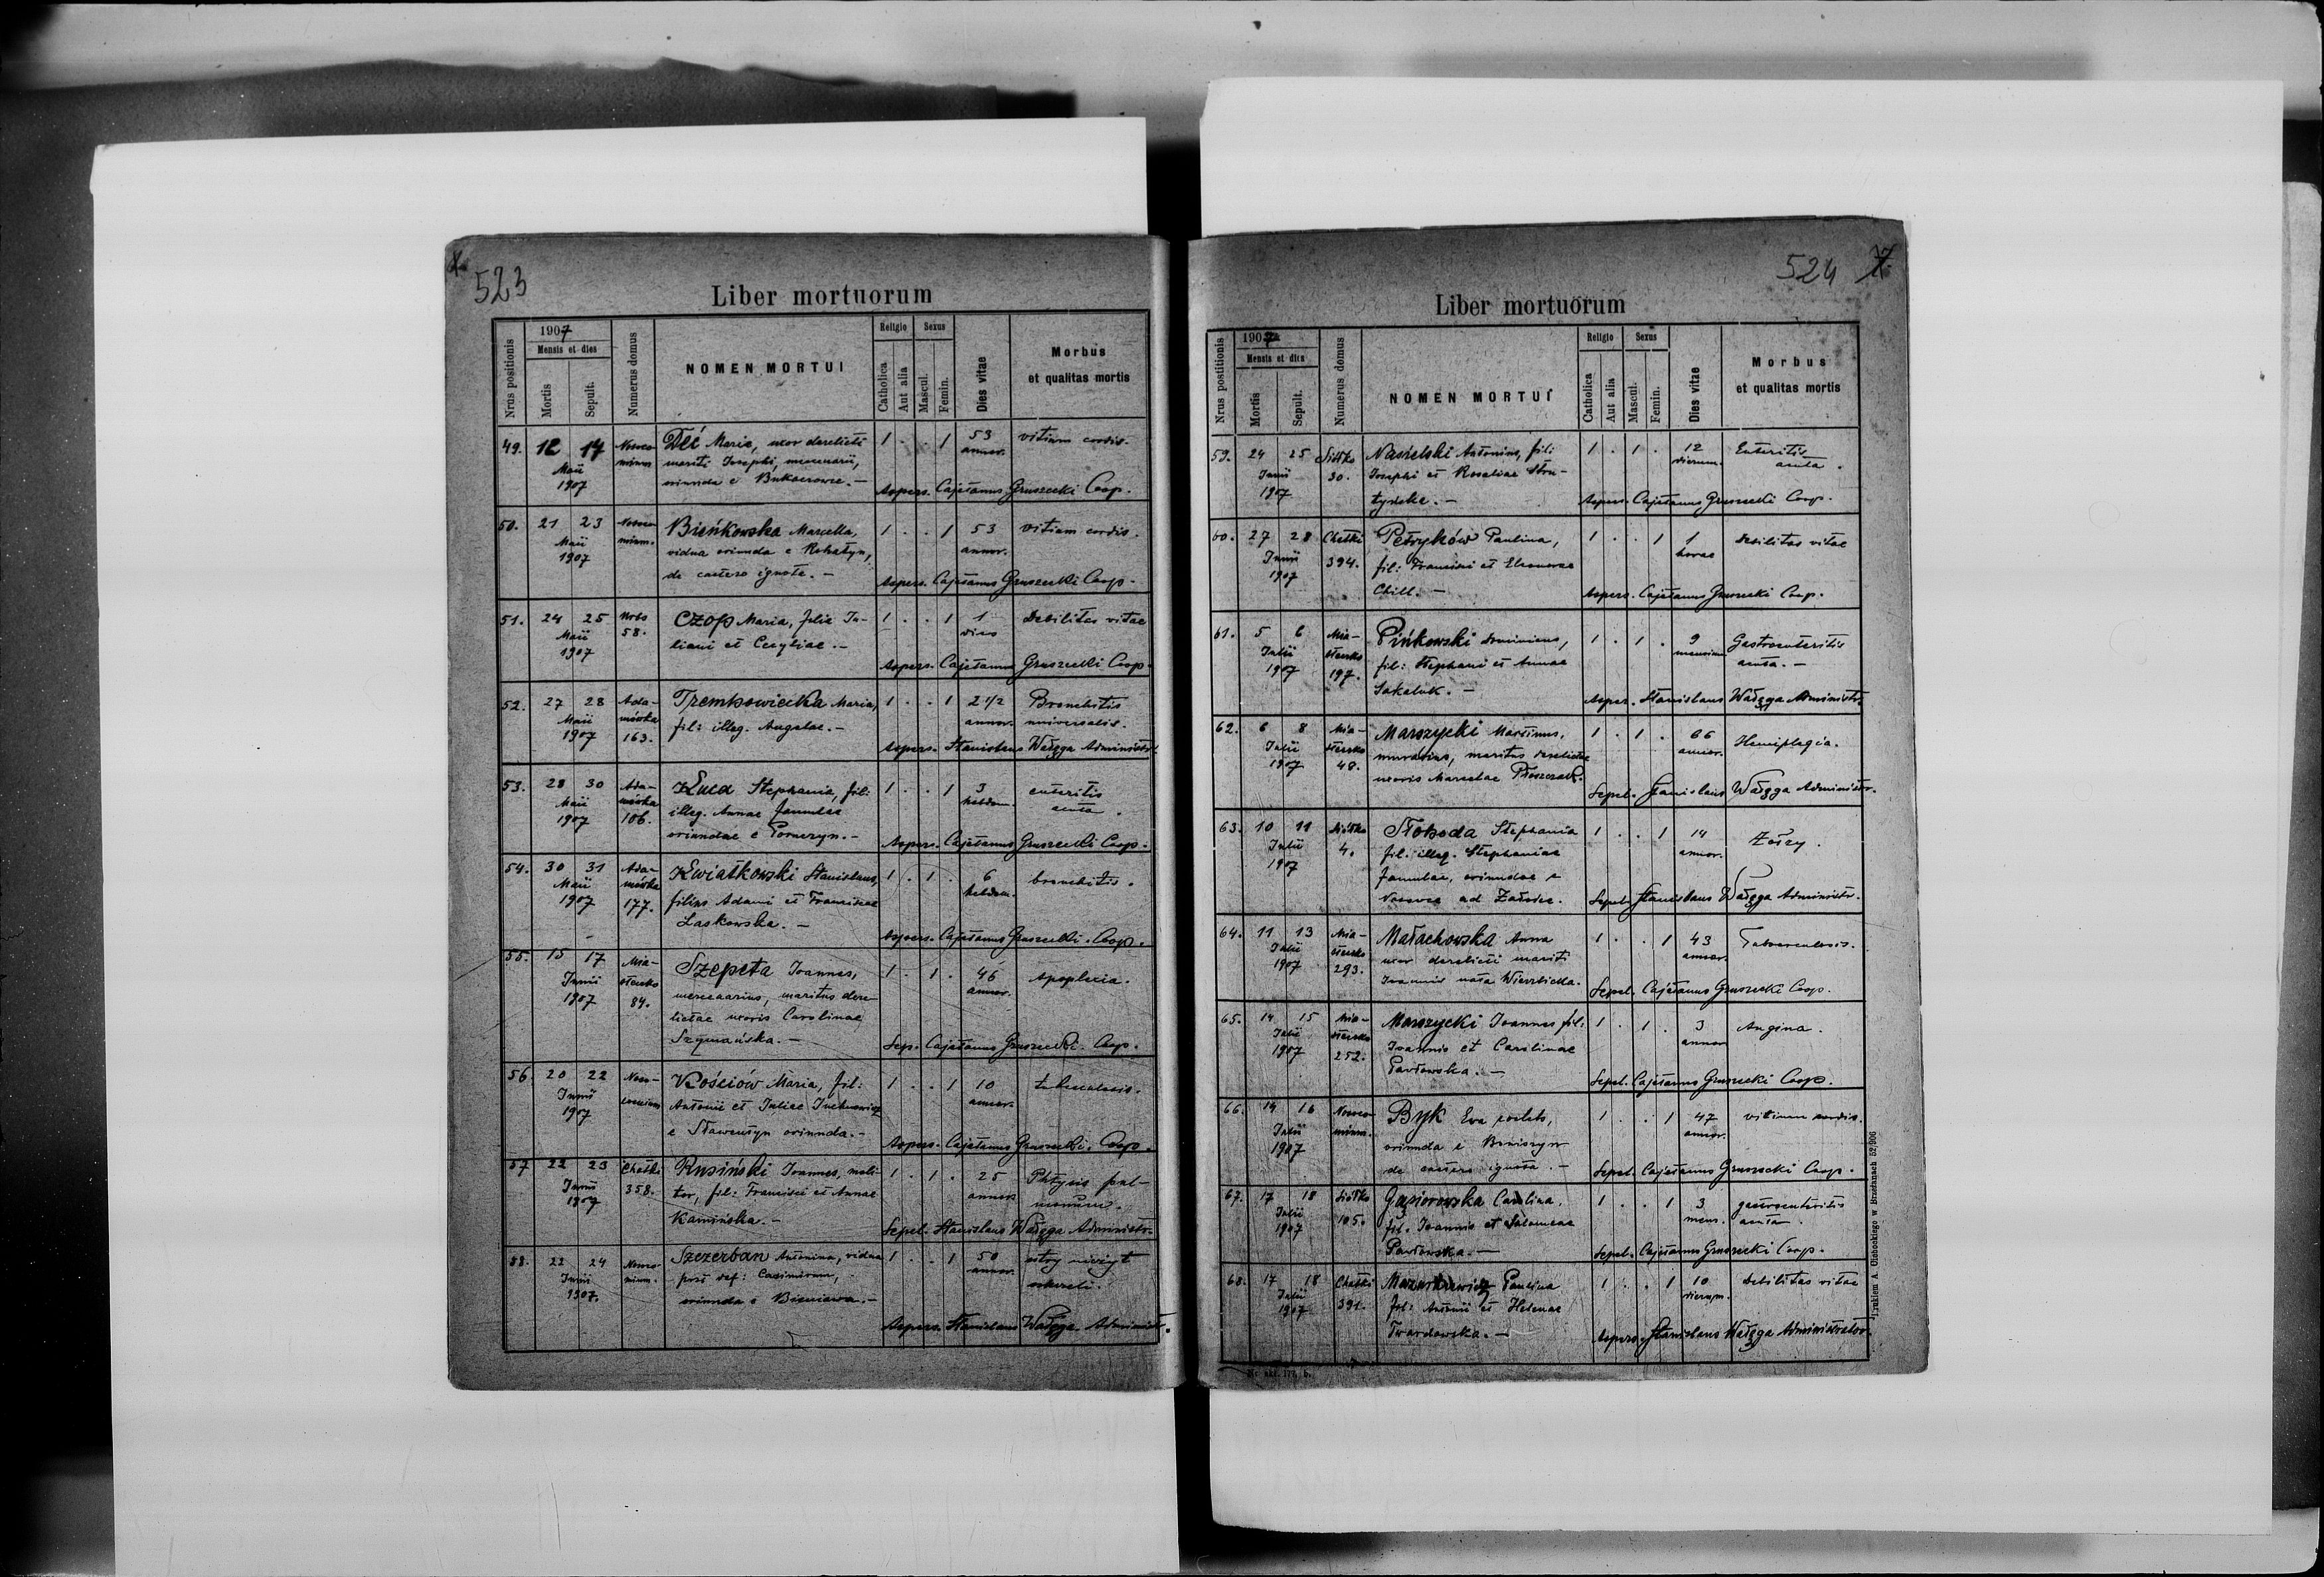 523
Liber mortuorum
Nrus positionis
1907
Mensis et dies
Mortis
Sepult.
Numerus domus
NOMEN MORTUI
Religio
Catholica
Aut alia
Sexus
Mascul.
Femin.
Dies vitae
Morbus
et qualitas mortis
49. 12 17 Maii 1907 Maria, uxor derelicti 1 . . 1 53 annor. vitium cordis.
mariti Josephi, mercenarii,
oriunda e
Aspers. Cajetanus Gruszecki Coop.
50. 21 23 Maii 1907 Bieńkowska Marcella, 1 . . 1 53 annor. vitium cordis.
vidua oriunda e Rohatyn,
de caetero ignota. –
Aspers. Cajetanus Gruszecki Coop.
51. 24 25 Maii 1907 58. Czop Maria, filia Ju- 1 . . 1 1 dies Debilitas vitae
liani et Cecyliae. –
Aspers. Cajetanus Gruszecki Coop.
52. 27 28 Maii 1907 Ada- mówka 163. Maria, 1 . . 1 2 1/2 annor. Bronchitis
fil: illeg. universalis.
Aspers. Stanislaus Wałęga Administr.
53. 28 30 Maii 1907 Ada- mówka 106. Stephania, fil: 1 . . 1 3 hebdom. enteritis
illeg. Annae famulae acuta.
oriundae e
Aspers. Cajetanus Gruszecki Coop.
54. 30 31 Maii 1907 Ada- mówka 177. Kwiatkowski Stanislaus, 1 . 1 . 6 hebdom. bronchitis.
filius Adami et Franciscae
Laskowska. –
Aspers. Cajetanus Gruszecki Coop.
55. 15 17 Junii 1907 Mia- steczko 84. Szepeta Joannes, 1 . 1 . 46 annor. Apoplexia.
mercenarius, maritus dere-
lictae uxoris Carolinae
Szymańska. –
Sep. Cajetanus Gruszecki Coop.
56. 20 22 Junii 1907 Kościów Maria, fil: 1 . . 1 10 annor. tuberculosis.
Antonii et Juliae
e Sławentyn oriunda. –
Aspers. Cajetanus Gruszecki Coop.
57. 22 23 Junii 1907 Chatki 358. Rusiński Joannes, moli- 1 . 1 . 25 annor. Phtysis pul-
tor, fil: Francisci et Annae monum.
Kamińska. –
Sepel. Stanislaus Wałęga Administr.
58. 22 24 Junii 1907. Szczerban Antonina, vidua 1 . . 1 50 annor. ostry nieżyt
post def: Casimirum, oskrzeli.
oriunda e
Aspers. Stanislaus Wałęga Administr.
524
Liber mortuorum
Nrus positionis
1907
Mensis et dies
Mortis
Sepult.
Numerus domus
NOMEN MORTUI
Religio
Catholica
Aut alia
Sexus
Mascul.
Femin.
Dies vitae
Morbus
et qualitas mortis
59. 24 25 Junii 1907 Siółko 30. Nasielski Antonius, fil: 1 . 1 . 12 dierum. Enteritis
Josephi et Rosaliae acuta.
Aspers. Cajetanus Gruszecki Coop.
60. 27 28 Junii 1907 Chatki 394. Petryków Paulina, 1 . . 1 1 horae Debilitas vitae
fil: Francisci et Eleonorae
Chill. –
Aspers. Cajetanus Gruszecki Coop.
61. 5 6 Julii 1907 Mia- steczko 197. Pińkowski Dominicus, 1 . 1 . 9 mensium Gastroenteritis
fil: Stephani et Annae acuta. –
Sakaluk. –
Asper. Stanislaus Wałęga Administr.
62. 6 8 Julii 1907 Mia- steczko 48. Marszycki Maximus, 1 . 1 . 66 annor. Hemiplegia.
murarius, maritus derelictae
uxoris Marcelae
Sepel. Stanislaus Wałęga Administr.
63. 10 11 Julii 1907 Siółko 4. Słoboda Stephania 1 . . 1 14 annor.
fil. illeg. Stephaniae
famulae, oriundae e
Sepel. Stanislaus Wałęga Administr.
64. 11 13 Julii 1907 Mia- steczko 293. Małachowska Anna 1 . . 1 43 annor. Tuberculosis.
uxor derelicti mariti
Joannis nata Wierzbicka.
Sepel. Cajetanus Gruszecki Coop.
65. 14 15 Julii 1907 Mia- steczko 252. Marszycki Joannes fil: 1 . 1 . 3 annor. Angina.
Joannis et Carolinae
Pawłowska. –
Sepel. Cajetanus Gruszecki Coop.
66. 14 16 Julii 1907 Byk Eva coelebs, 1 . . 1 47 annor. vitium cordis.
oriunda e
de caetero ignota. –
Sepel. Cajetanus Gruszecki Coop.
67. 17 18 Julii 1907 Siółko 105. Gąsiorowska Carolina. 1 . . 1 3 mens. gastroenteritis
fil. Joannis et Salomeae acuta.
Pawłowska. –
Sepel. Cajetanus Gruszecki Coop.
68. 17 18 Julii 1907 Chatki 391. Paulina 1 . . 1 10 dierum. Debilitas vitae
fil: Antonii et Helenae
Twardowska. –
Aspers. Stanislaus Wałęga Administrator.